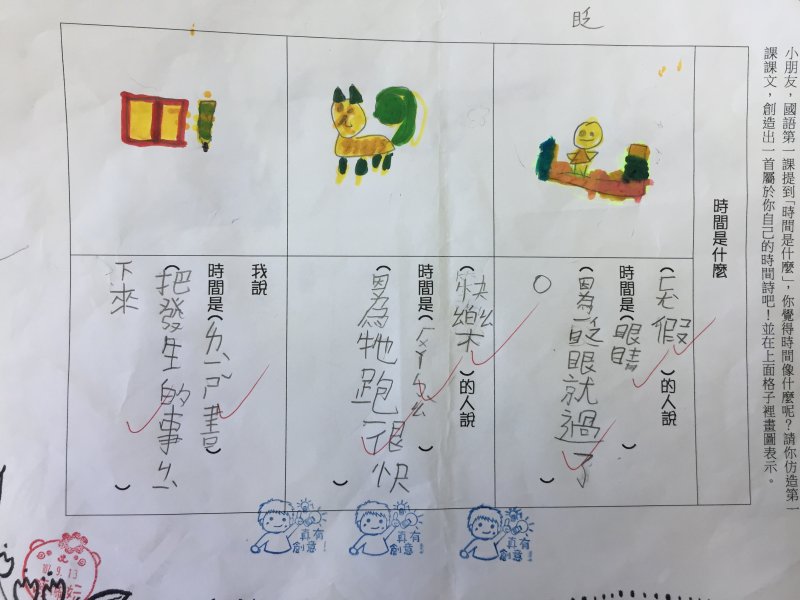 眨
小朋友，國語第一課提到「時間是什麼」，你覺得時間像什麼呢？請你仿造第一
課課文，創造出一首屬於你自己的時間詩吧！並在上面格子裡畫圖表示。
時間是什麼
（ㄈㄤ假）的人說
時間是（眼睛）
（因為一眨眼就過了
。）
（快樂）的人說
時間是（）
（因為牠跑很快）
我說
時間是（書）
（把發生的事
下來）
真有
創意！
真有
創意！
真有
創意！
9.13